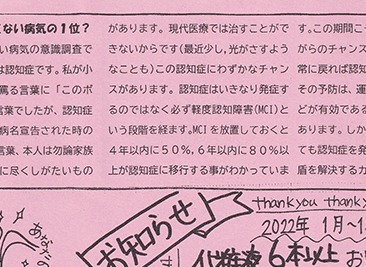 ない病気の1位?
い病気の意識調査で
は認知症です。私が小
罵る言葉に「このボ
言葉でしたが、認知症
病名宣告された時の
言葉、本人は勿論家族
に尽くしがたいもの
があります。現代医療では治すことがで
きないからです(最近少し,光がさすよう
なことも)この認知症にわずかなチャン
スがあります。認知症はいきなり発症す
るのではなく必ず軽度認知障害(MCI)と
いう段階を経ます。MCIを放置しておくと
4年以内に50%,6年以内に80%以
上が認知症に移行する事がわかっていま
す。この期間こそ
がらのチャンス
常に戻れば認知
その予防は、運
どが有効である
あります。しか
ても認知症を発
盾を解決する力
お知らせ
thank you thank y
2022年 1月~1
化粧液 6本以上 お